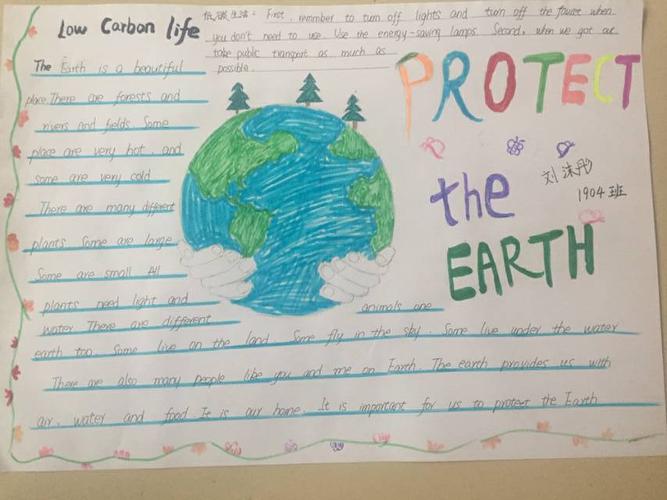 Low Carbon life
低碳生活: First, remember to turn off lights and turn off the faucet when
you don't need to use. Use the energy-saving lamps. Second, when we got out
take public transport as much as
possible.
PROTECT
the
EARTH
刘沫彤
1904班
The Earth is a beautiful
place. There are forests and
rivers And fields. Some
place are very hot, and
some are very cold
There are many different
plants Some are large
Some are small All
plants need light and
water There are different animals one
earth too. Some live on the land. Some fly in the sky. Some live under the water
There are also many people like you and me on Earth. The earth provides us with
air, water and food It is our home. It is important for us to protect the Earth